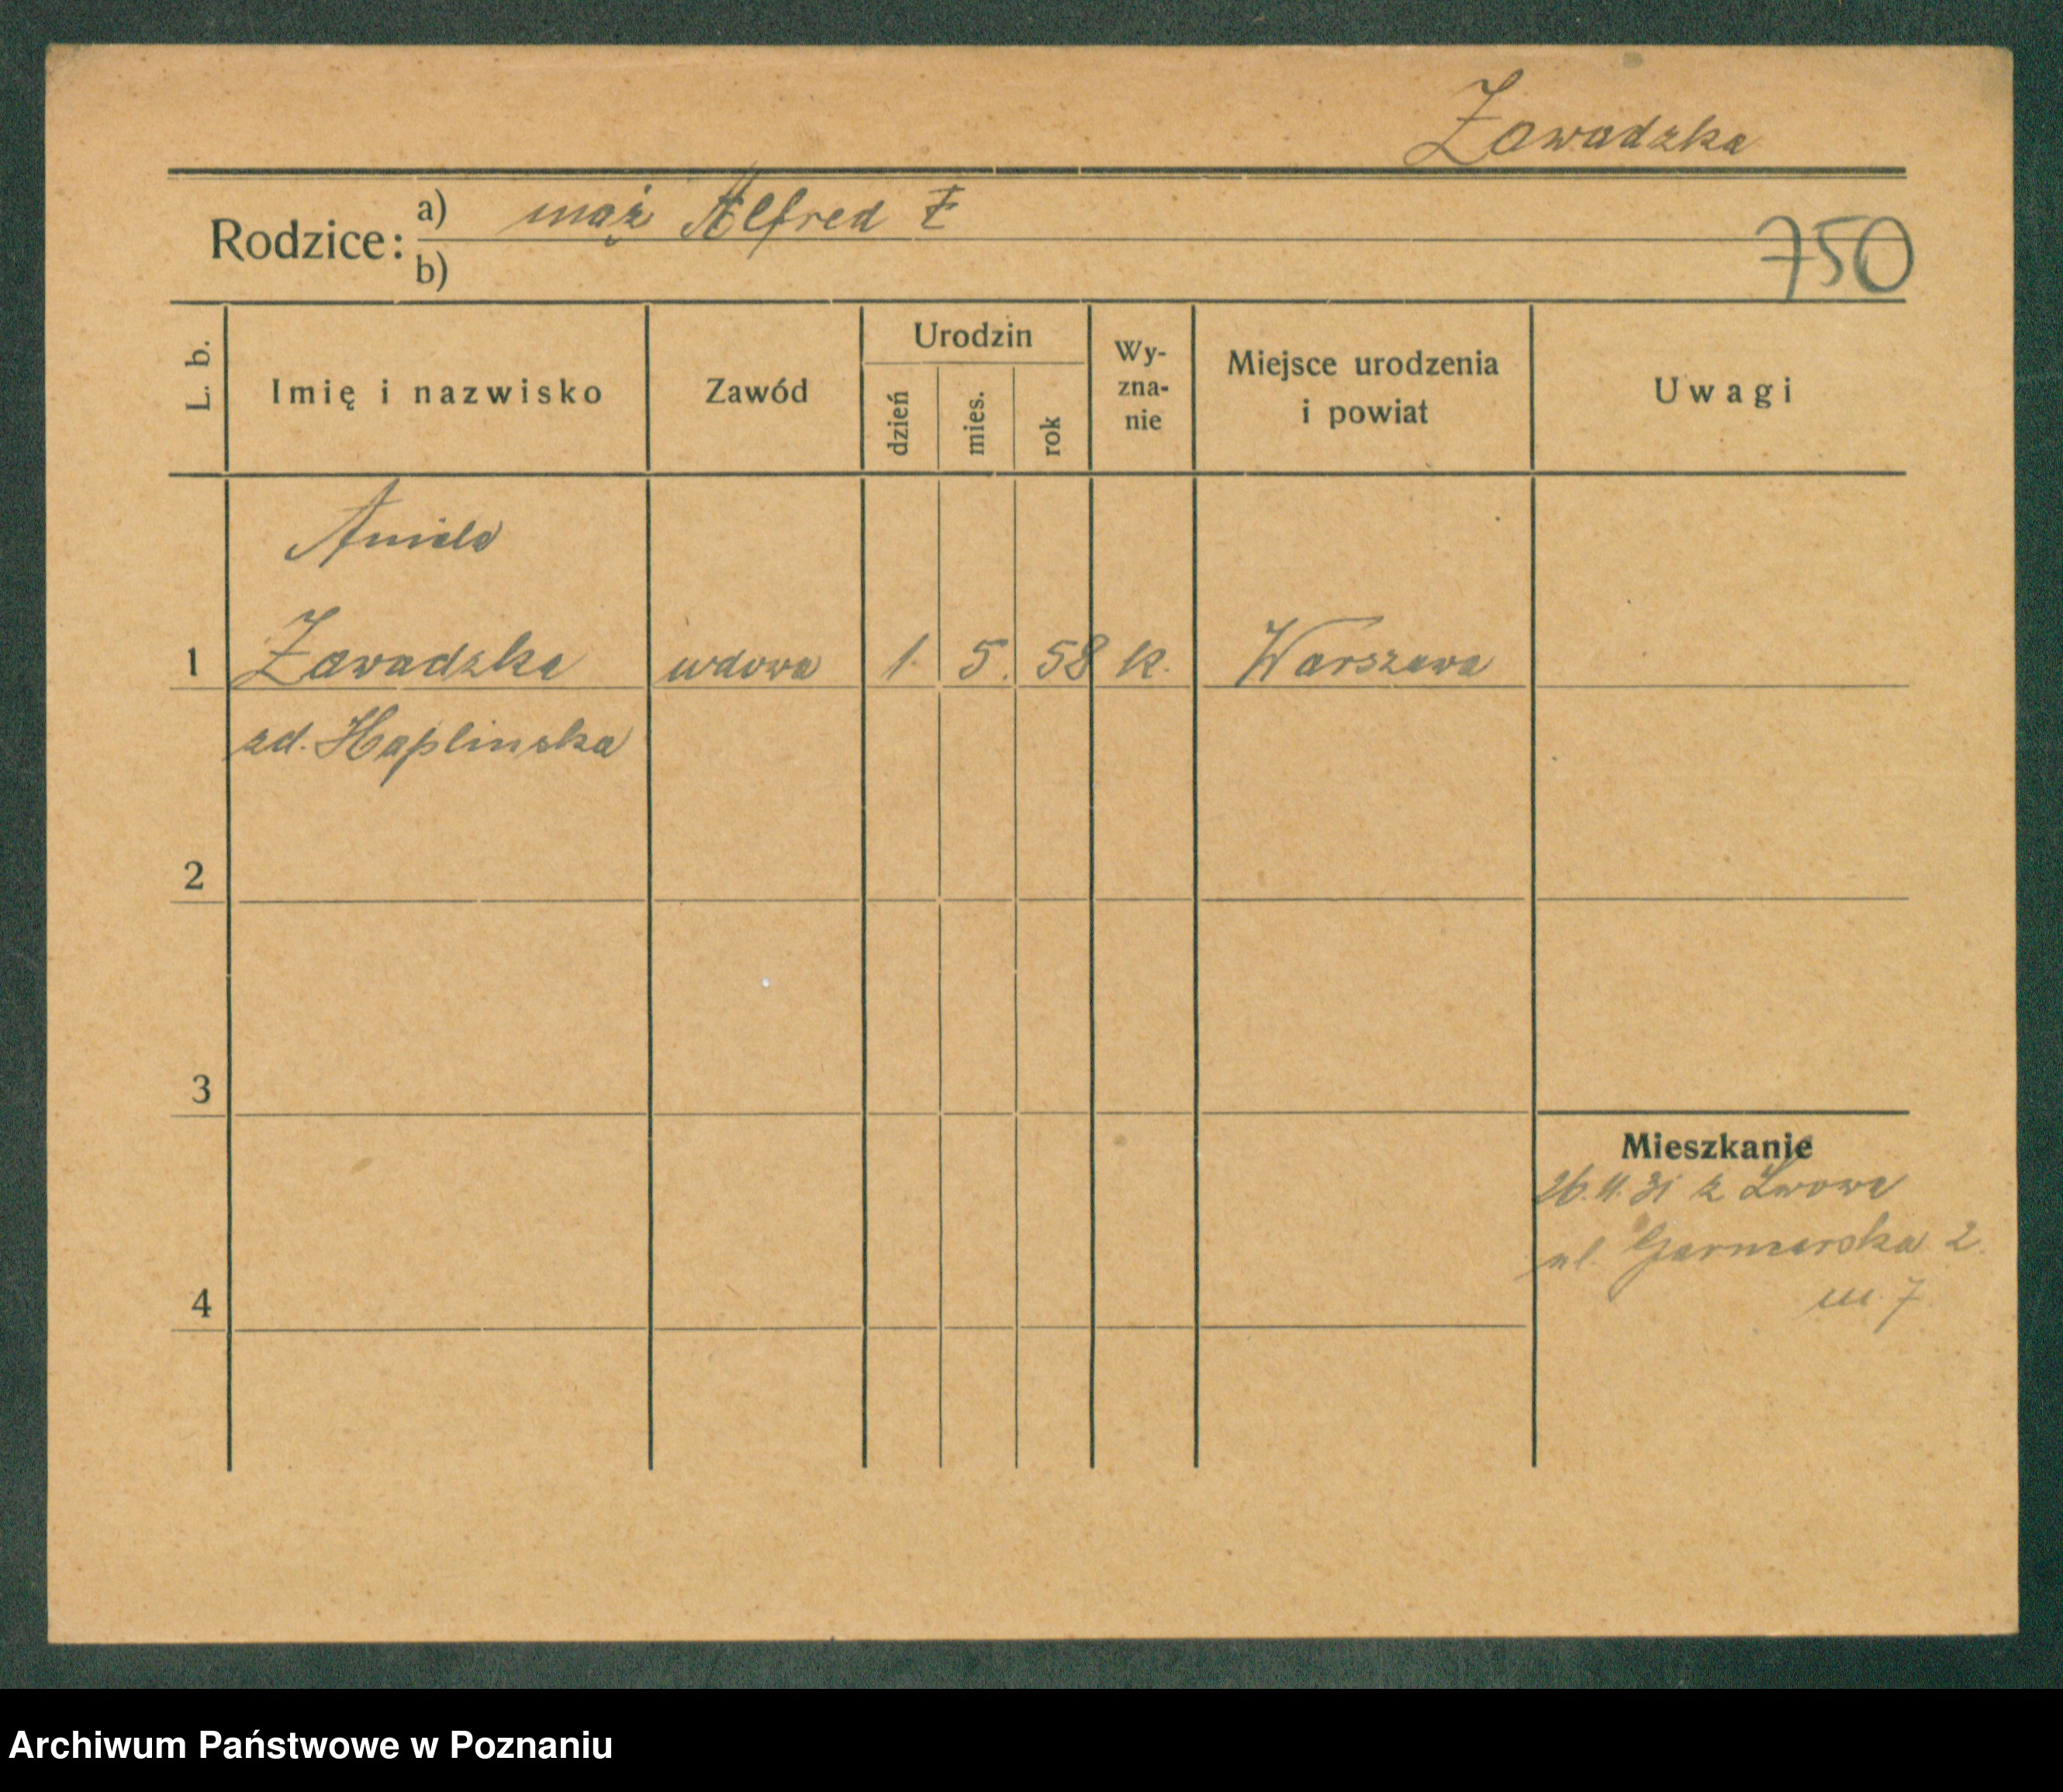 Zawadzka
Rodzice: a) mąż Alfred Z
b)
750
L. b. Imię i nazwisko Zawód Urodzin dzień mies. rok Wy-zna-nie Miejsce urodzenia i powiat Uwagi
Aniela
1 Zawadzka wdowa 1. 5. 58 k. Warszawa
zd. Haplinska
2
3
Mieszkanie
26.11.31 z Lwowa
ul. Garncarska 2.
4
m. 7.
Archiwum Państwowe w Poznaniu